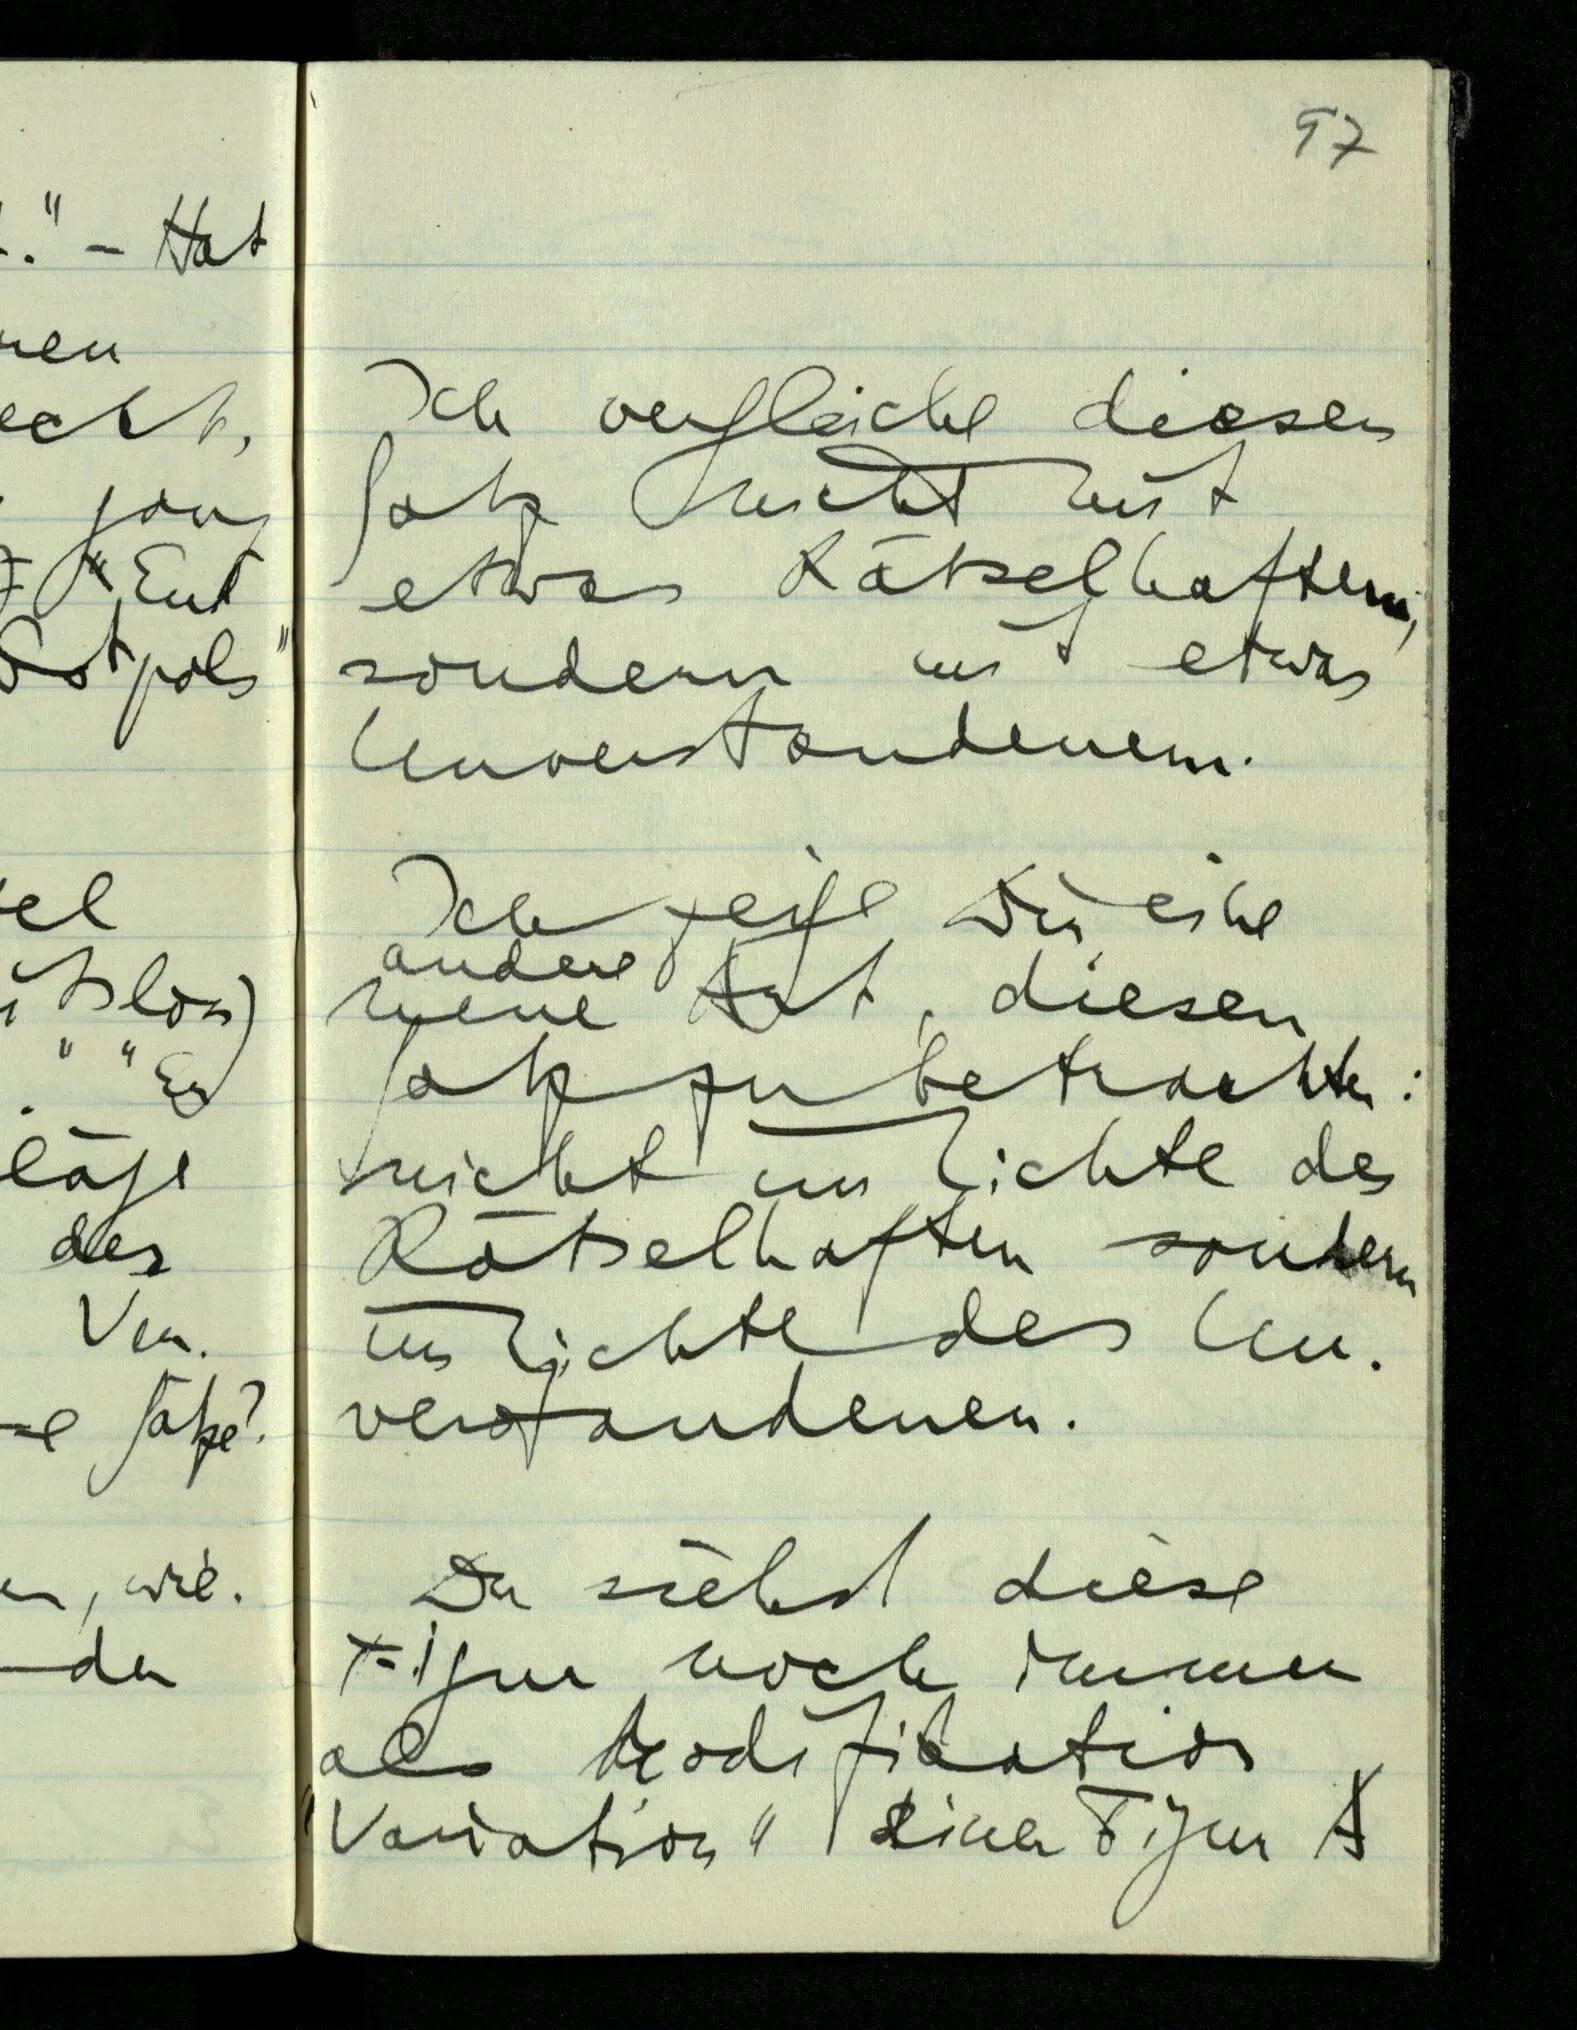 ." – Hat
nen
echt,
"Ent
Ostpols"
tel
" " Er
des
Ver.
Sätze?
, wie.
der
97
Ich vergleiche diesen
Satz nicht mit
etwas Rätselhaftem,
sondern mit etwas
Unverstandenem.
Ich zeige Dir eine
andere
neue Art, diesen
Satz zu betrachten:
nicht im Lichte des
Rätselhaften sondern
im Lichte des Un-
verstandenen.
Du siehst diese
Figur noch immer
als Modifikation
"Variation" einer Figur A